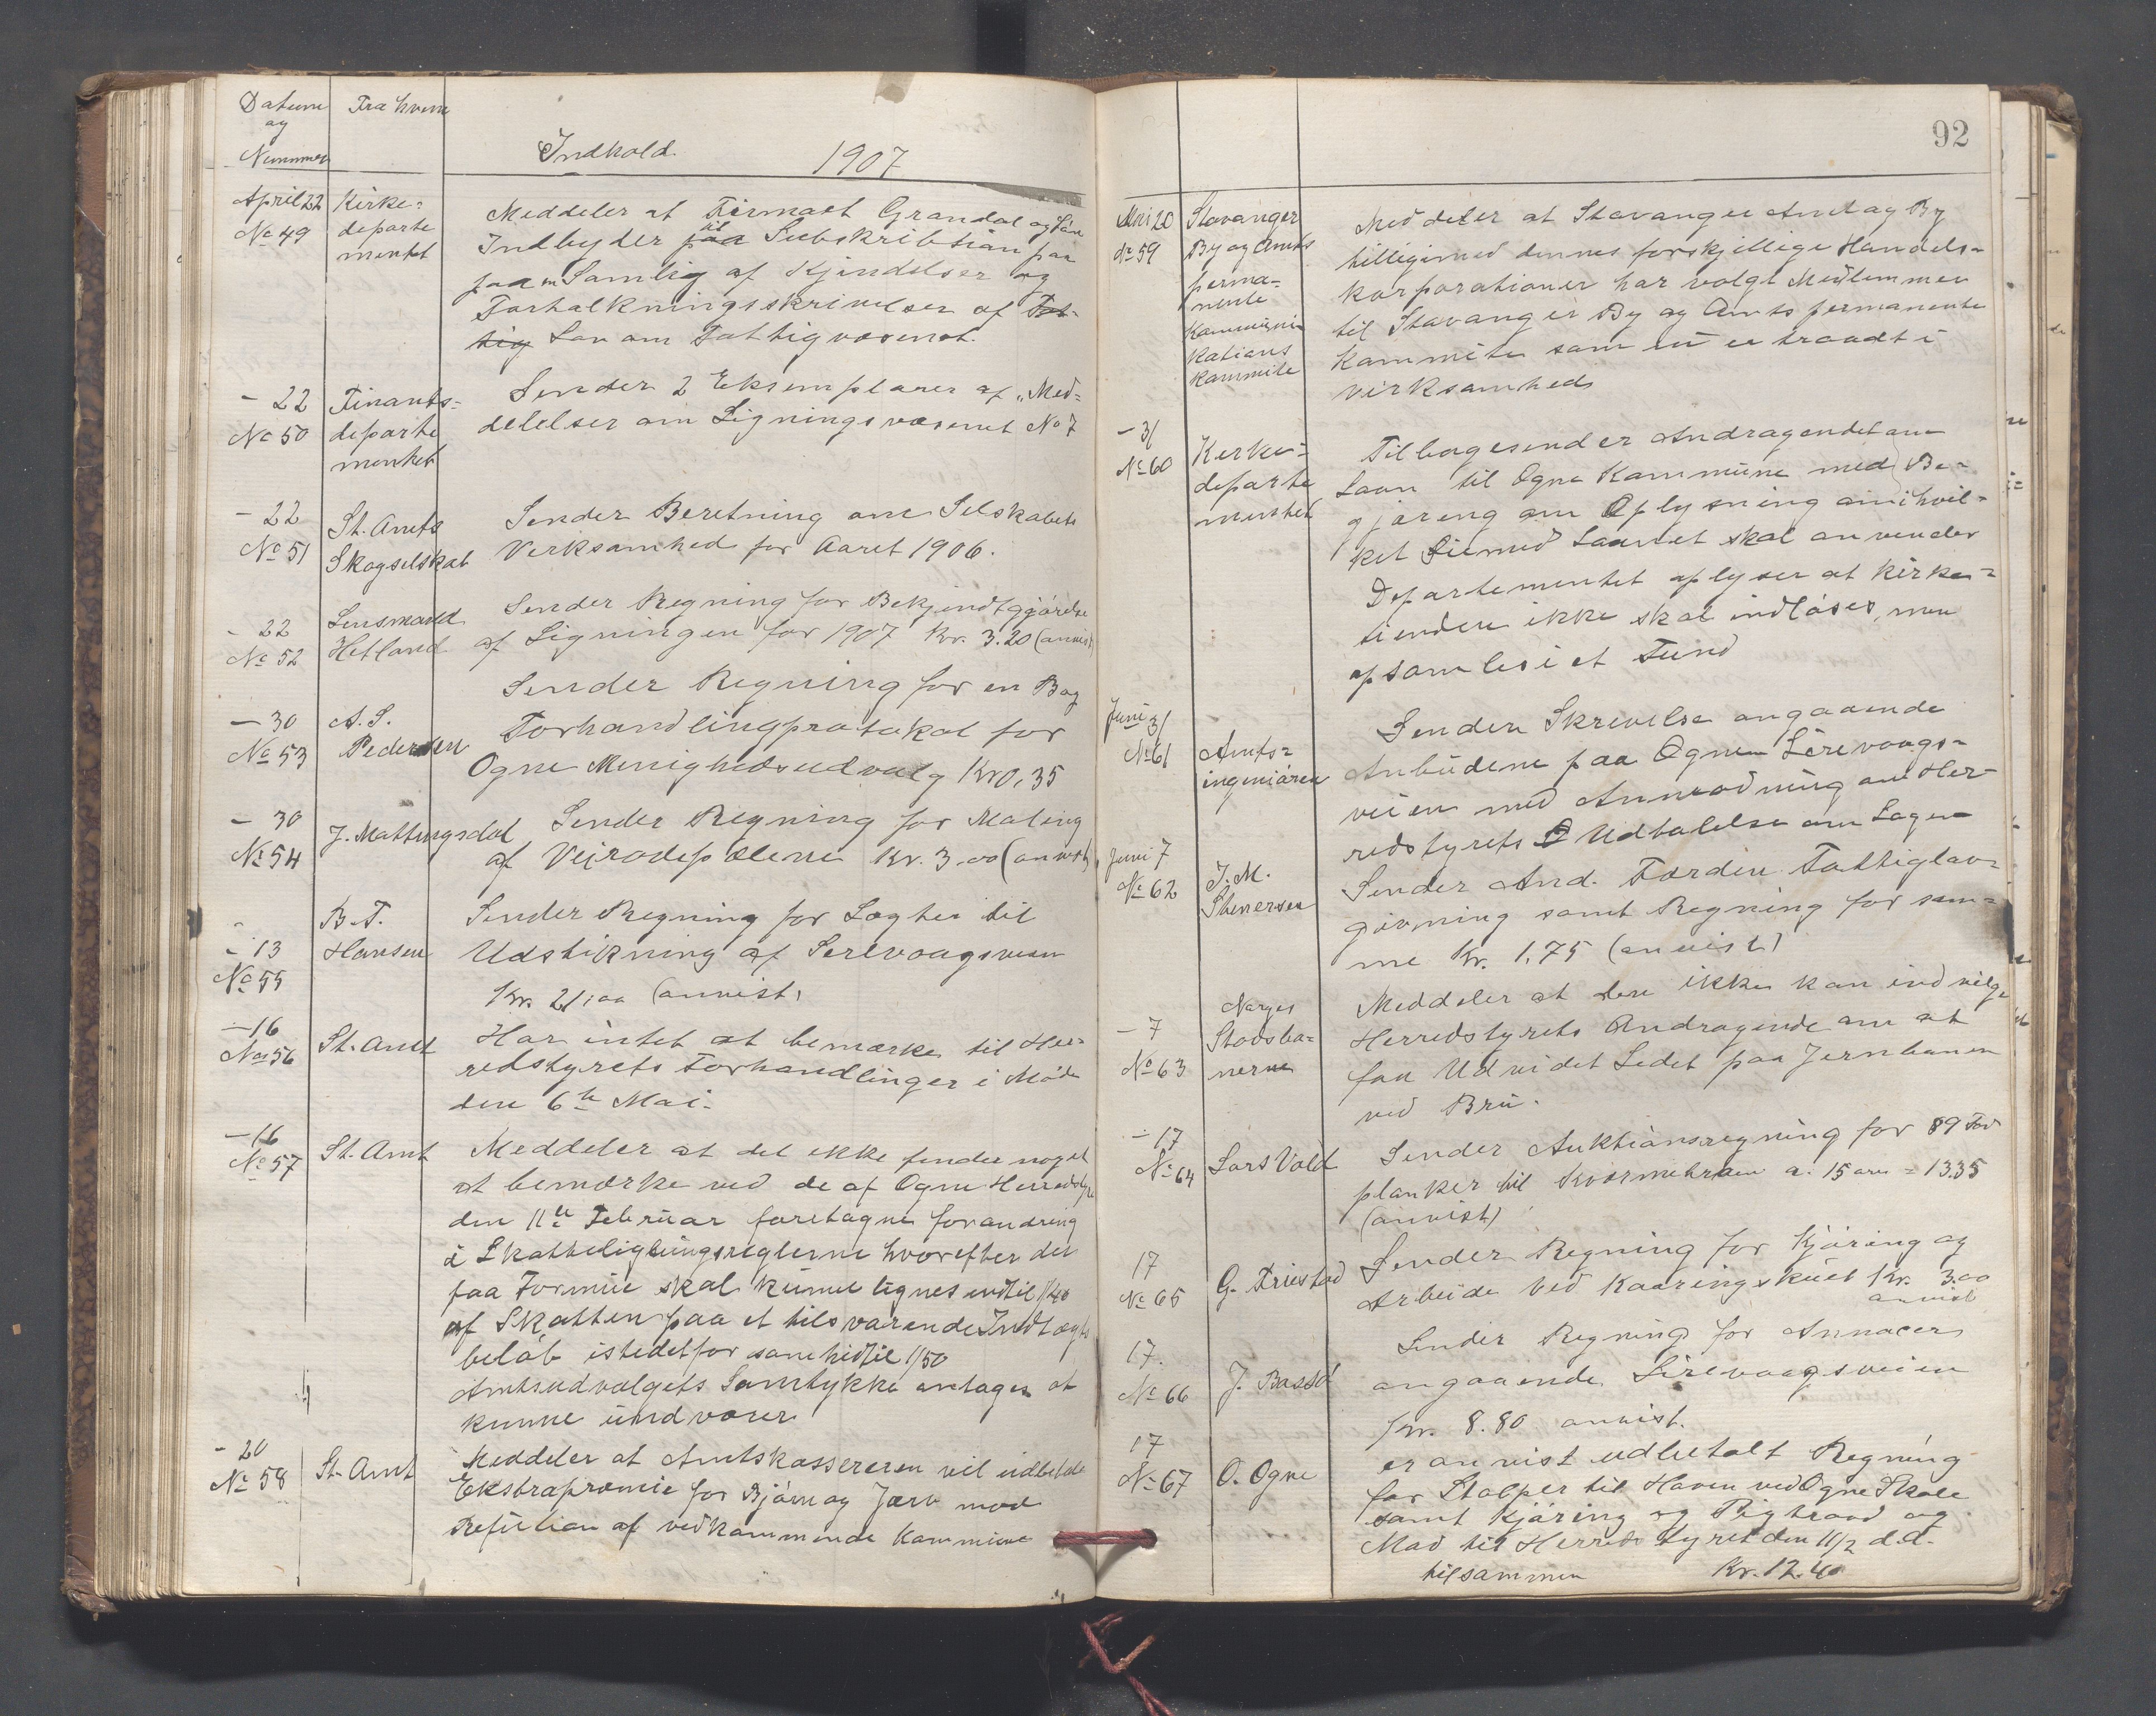 Datum
og
Nummer
Fra hvem
Indhold.
1907
April 22
No 49
Kirke-
departe
mentet
Meddeler at Firmaet Grøndal og Søn
Indbyder til Subskribtion paa
paa en Samlig af Kjendelser og
Fortalkningsskrivelser af Fat-
tig Lov om Fattigvæsenet.
- 22
No 50
Finants-
departe
mentet
Sender 2 Eksemplarer af "Med-
delelser om Ligningsvæsenet No 7
- 22
No 51
St. Amts
Skogselskab
Sender Beretning om Selskabets
Verksomhed for Aaret 1906.
- 22
No 52
Lensmand
Hetland
Sender Regning for Bekjendtgjørelse
af Ligningen for 1907 Kr. 3.20 (anvist)
- 30
No 53
A. S.
Pedersen
Sender Regning for en Bog
Forhandlingprotokol for
Ogne Menighedsudvalg Kr 0,35
- 30
No 54
J. Mattingsdal
Sender Regning for Maling
af Veirodepælene Kr. 3.00 (anvist)
- 13
No 55
B. T.
Hansen
Sender Regning for Lægter til
Udstikning af Sirevaagsveien
Kr. 21,00 (anvist)
- 16
No 56
St. Amt
Har intet at bemærke til Her-
redstyrets Forhandlinger i Møde
den 6te Mai.
- 16
No 57
St. Amt
Meddeler at det ikke finder noget
at bemærke ved de af Ogne Herredstyre
den 11te Februar foretagne forandring
i Skatteligningsreglerne hvorefter der
paa Formue skal kunne lignes indtil 1/40
af Skatten paa et tilsvarende Indtægts
beløb istedetfor som hidtil 1/50
Amtsudvalgets Samtykke antages at
kunne undværes
- 20
No 58
St. Amt
Meddeler at Amtskassereren vil udbetale
Ekstrapræmie for Bjørn og Jærv mod
Refution af vedkommende Kommune
92
Mai 20
No 59
Stavanger
By og Amts
perma-
nente
Kommuni
kations
kommite
Meddeler at Stavanger Amt og By
tilligemed dennes forskjellige Handels-
korporationer har valgt Medlemmer
til Stavanger By og Amts permanente
Kommite som nu er traadt i
virksomhed
- 31
No 60
Kirke-
departe
mentet
Tilbagesender Andragendet om
Laan til Ogne Kommune med Be-
gjæring om Oplysning om i hvil-
ket Øiemed Laanet skal anvendes
Departementet oplyser at kirke-
tienden ikke skal indløses, men
opsamles i et Fund
Juni 31
No 61
Amts-
ingeniøren
Sender Skrivelse angaaende
Anbudene paa Ognen Sirevaags-
veien med Anmodning om Her-
redstyrets Udtalelse om Sagen
Juni 7
No 62
J. M.
Stenersen
Sender And. Færden Fattiglov-
givning samt Regning for sam-
me Kr. 1,75 (anvist)
- 7
No 63
Norges
Stadsba-
nerne
Meddeler at den ikke kan indvilge
Herredstyrets Andragende om at
faa Udvidet Ledet paa Jernbanen
ved Bru.
- 17
No 64
Lars Vold
Sender Auktionsregning for 89 Fod
planker til Kvernehraen a. 15 øre = 13.35
(anvist)
17
No 65
G. Friestad
Sender Regning for Kjøring og
Arbeide ved Kaaringskuet Kr. 3.00
anvist
17.
No 66
J. Bassø
Sender Regning for Annoncer
angaaende Sirevaagsveien
Kr. 8.80 anvist.
17
No 67
O. Ogne
er anvist udbetalt Regning
for Stolper til Haven ved Ogne Skole
samt Kjøring og Pigtraad og
Mad til Herredstyret den 11/2 d.A.
tilsammen Kr. 12.40